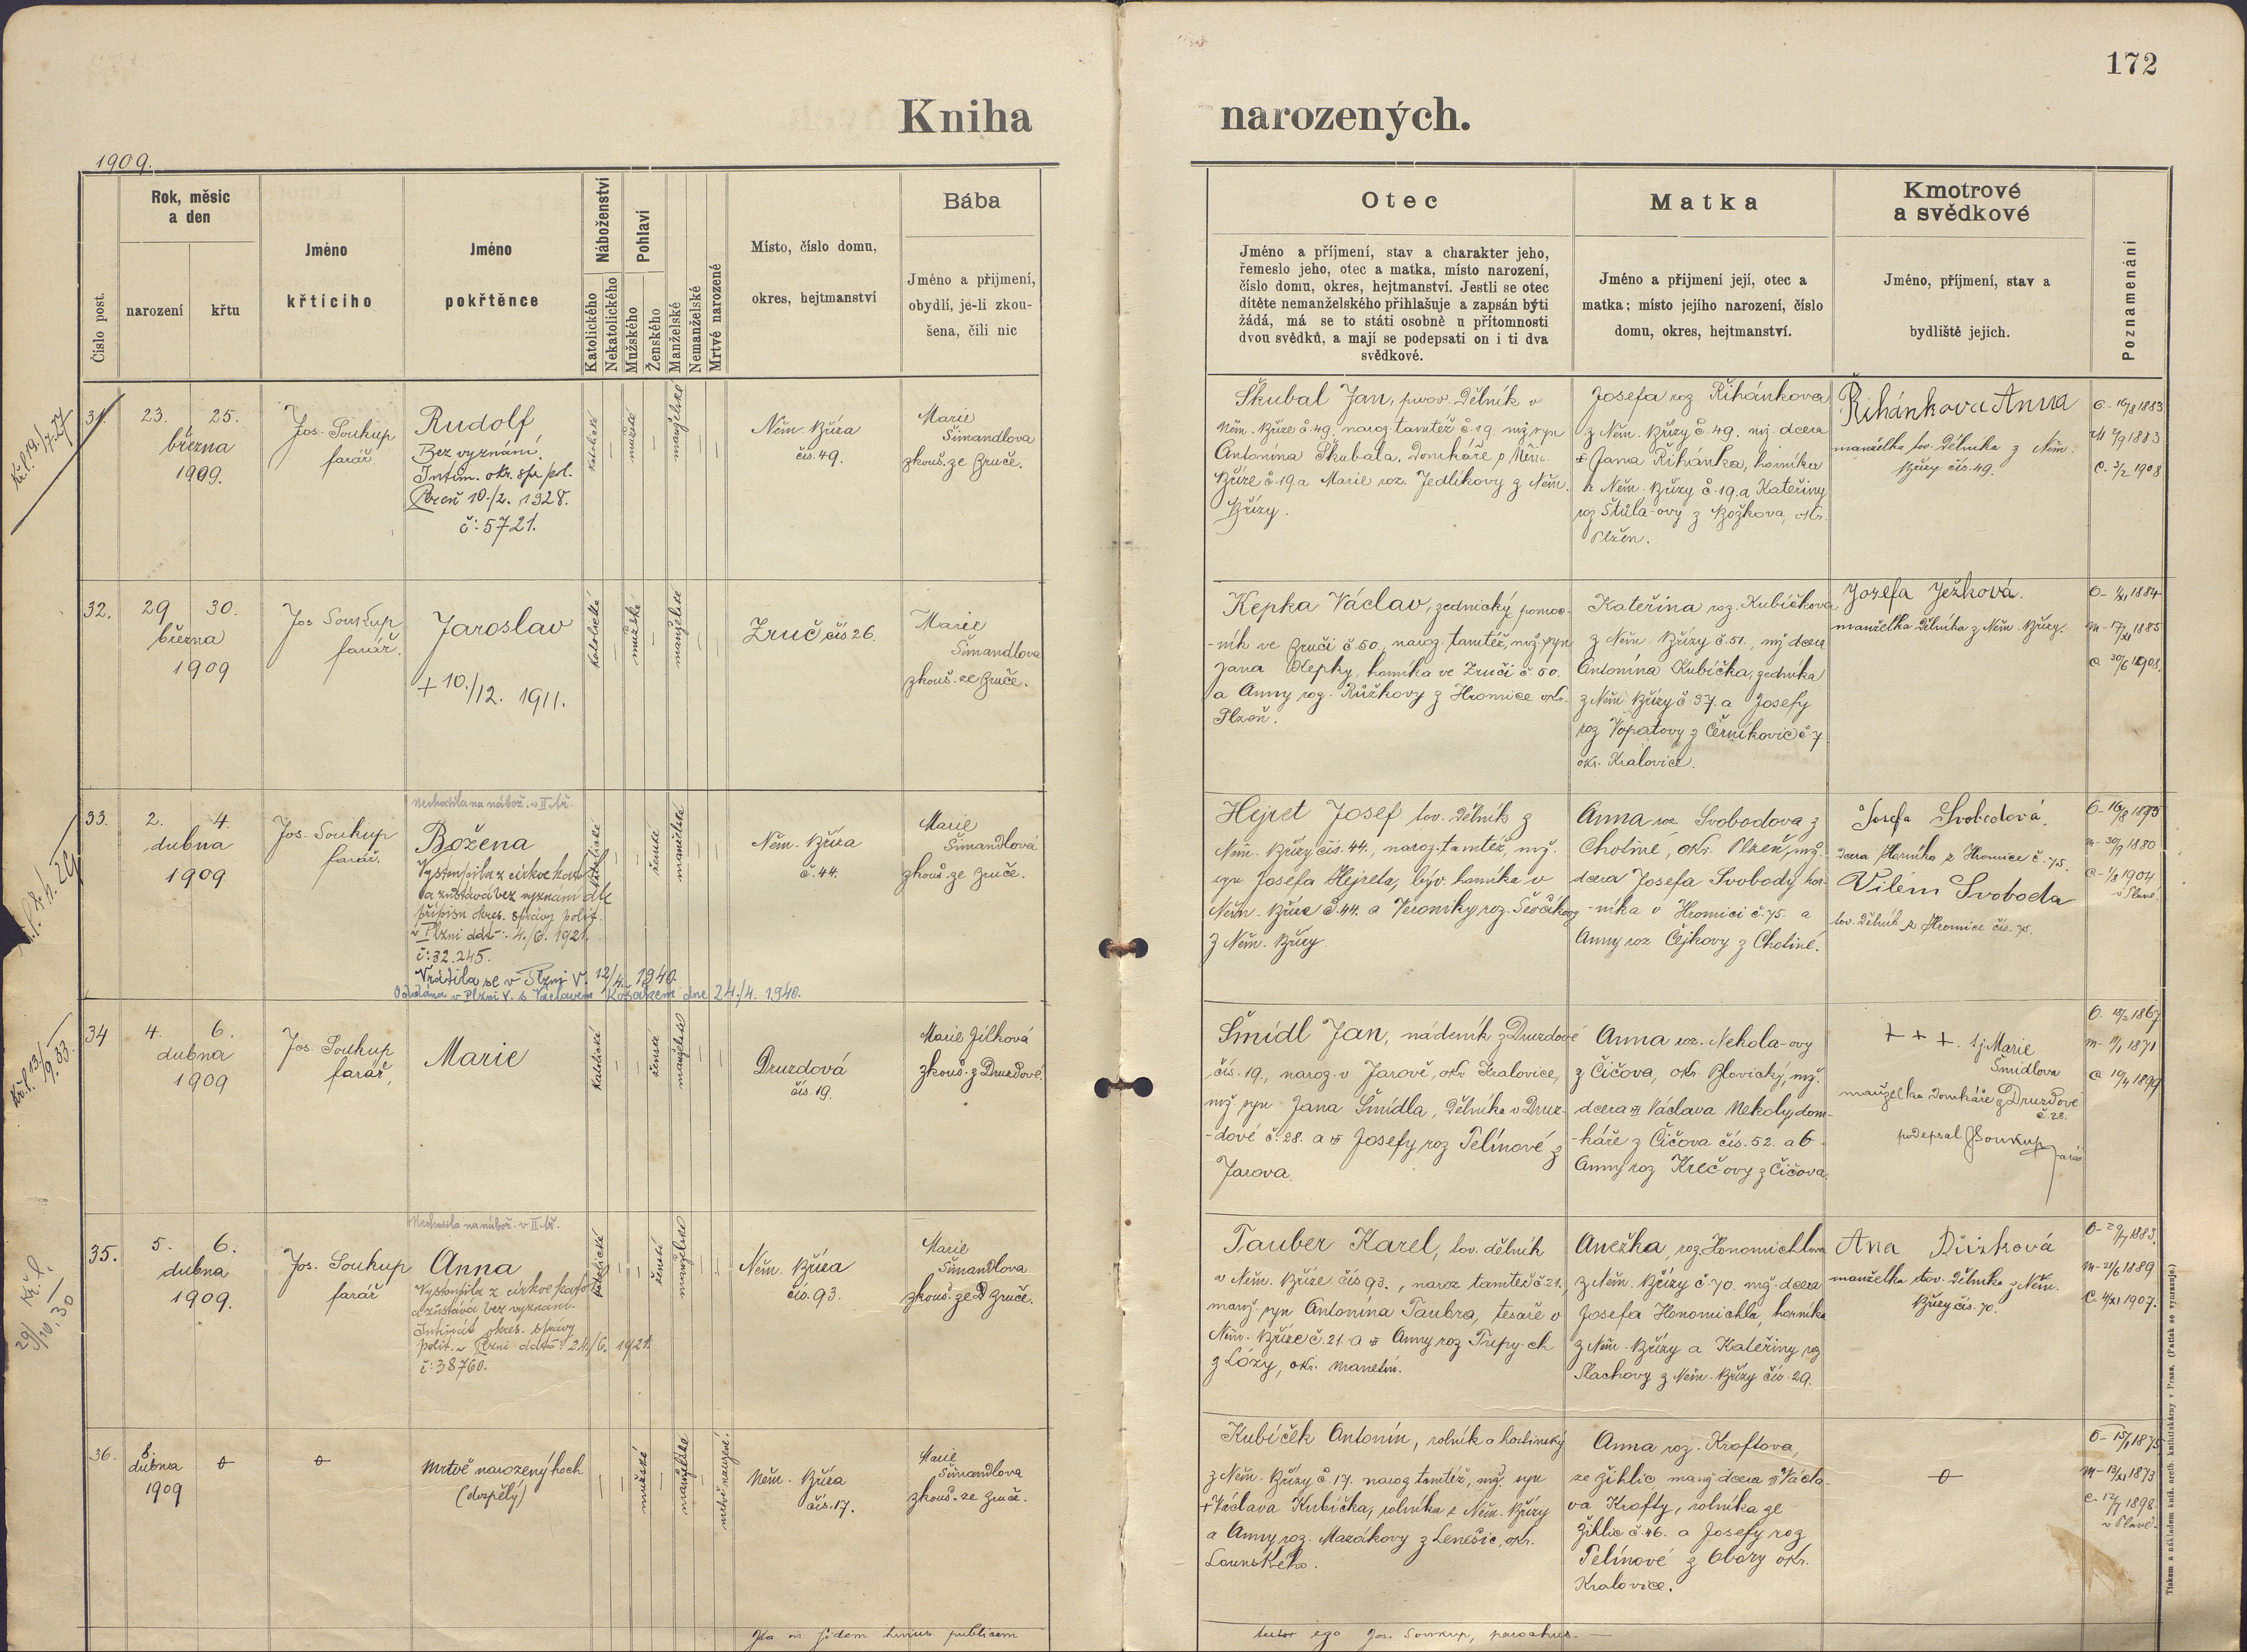 172
Kniha narozených.
1909.
Číslo post.
Rok, měsíc
a den
narození
křtu
Jméno
křtícího
Jméno
pokřtěnce
Náboženství
Katolického
Nekatolického
Pohlaví
Mužského
Ženského
Manželské
Nemanželské
Mrtvé narozené
Místo, číslo domu,
okres, hejtmanství
Bába
Jméno a přijmení,
obydlí, je-li zkou-
šena, čili nic
Otec
Jméno a příjmení, stav a charakter jeho,
řemeslo jeho, otec a matka, místo narození,
číslo domu, okres, hejtmanství. Jestli se otec
dítěte nemanželského přihlašuje a zapsán býti
žádá, má se to státi osobně u přítomnosti
dvou svědků, a mají se podepsati on i ti dva
svědkové.
Matka
Jméno a přijmení její, otec a
matka; místo jejího narození, číslo
domu, okres, hejtmanství.
Kmotrové
a svědkové
Jméno, příjmení, stav a
bydliště jejich.
Poznamenání
Kř.l. 19./7.27
31.
23. 25.
března
1909.
Jos. Soukup
farář
Rudolf
Bez vyznání.
Intim. okr. spr. pol.
Plzeň 10./2. 1928.
č: 5721.
katolické
mužské
manželské
Něm. Bříza
čís. 49.
Marie
Šimandlova
zkouš. ze Zruče.
Škubal Jan, puov. dělník v
Něm. Bříze č. 49. naroz. tamtéž č. 19. mž. syn
Antonína Škubala, domkáře v Něm.
Bříze č. 19. a Marie roz. Jedlíkovy z Něm.
Břízy.
Josefa roz. Řihánkova
z Něm. Břízy č. 49. mž. dcera
Jana Řihánka, horníka
z Něm. Břízy č. 19. a Kateřiny
roz. Štůla-ovy z Božkova, okr.
Plzeň.
Řihánkova Anna
manželka tov. dělníka z Něm.
Břízy čís. 49.
O- 16/8 1883
M 7/9 1883
C. 3/2 1908
32.
29 30.
března
1909
Jos Soukup
farář.
Jaroslav
+ 10./12. 1911.
katolické
mužské
manželské
Zruč čís 26.
Marie
Šimandlova
zkouš. ze Zruče.
Kepka Václav, zednický pomoc-
-ník ve Zruči č. 50. naroz. tamtéž, mž. syn
Jana Kepky, horníka ve Zruči č. 50.
a Anny roz. Růžkovy z Hromice okr.
Plzeň.
Kateřina roz. Kubíčkova
z Něm. Břízy č. 51., mž. dcera
Antonína Kubíčka, zedníka
z Něm. Břízy č. 37. a Josefy
roz Vopatovy z Černíkovic č 7
okr. Kralovice.
Josefa Ježková.
manželka dělníka z Něm. Břízy.
1884
1885
30/6 1908.
33.
2. 4.
dubna
1909
Jos. Soukup
farář.
Nechodila na nábož. v II. tř.
Božena
Vystoupila z církve kat.
a zůstává bez vyznání dle
přípisu okres. správy polit.
v Plzni ddto: 4./6. 1921.
č: 32.245.
Vrátila se v Plzni V. 12/4. 1940.
Oddána v Plzni V. s Václavem Kožákem dne 24./4. 1940.
katolické
ženské
manželské
Něm. Bříza
č. 44.
Marie
Šimandlová
zkouš. ze Zruče.
Hejret Josef tov. dělník z
Něm. Břízy čís. 44., naroz. tamtéž, mž.
syn Josefa Hejreta, býv. horníka v
Něm. Bříze č. 44. a Veroniky roz. Ševčíkovy
z Něm. Břízy.
Anna roz. Svobodova z
Chotiné, okr. Plzeň, mž.
dcera Josefa Svobody hor-
-níka v Hromici č. 75. a
Anny roz Čejkovy z Chotiné.
Josefa Svobodová.
dcera horníka z Hromice č. 75.
Vilém Svoboda
tov. dělník z Hromice čís. 75.
M- 30/9 1880
C- 1/8 1904
v Plané.
Kř.l. 13./9.33.
34
4. 6.
dubna
1909
Jos. Soukup
farář,
Marie
katolické
ženské
manželské
Druzdová
čís. 19.
Marie Jílková
zkouš. z Druzdové.
Šmídl Jan, nádeník z Druzdové
čís. 19., naroz. v Jarově, okr. Kralovice,
mž. syn Jana Šmídla, dělníka v Druz-
-dové č. 28. a Josefy roz Pelínové z
Jarova.
Anna roz. Nekola-ovy
z Čičova, okr. Blovický, mž.
dcera Václava Nekoly, dom-
-káře z Čičova čís. 52. a
Anny roz Krečovy z Čičova.
+ + +. tj. Marie
Šmídlova
manželka domkáře z Druzdové
č. 28.
podepsal J Soukup
farář
1867
1871
1899
29/10. 30 Kř.l.
35.
5. 6.
dubna
1909.
Jos. Soukup
farář
Nechodila na nábož. v II. tř.
Anna
Vystoupila z církve kato
a zůstává bez vyznání.
Intimát okres. správy
polit. v Plzni ddto: 24./6. 1921.
č: 38760.
katolické
ženské
manželské
Něm. Bříza
čís. 93.
Marie
Šimandlova
zkouš. ze Zruče.
Tauber Karel, tov. dělník
v Něm. Bříze čís 93., naroz tamtéž č. 21.
manž. syn Antonína Taubra, tesaře v
Něm. Bříze č. 21. a Anny roz
z Lózy, okr. Manetín.
Anežka, roz. Honomichlova
z Něm. Břízy č. 70. mž. dcera
Josefa Honomichla, horníka
z Něm. Břízy a Kateřiny roz
Plachovy z Něm. Břízy čís. 29.
Ana
manželka tov. dělníka z Něm.
Břízy čís. 70.
1883.
M- 21/6 1889
C. 4/XI 1907.
36.
8.
dubna
1909
Mrtvě narozený hoch
(dospělý)
mužské
manželské
mrtvě narozené.
Něm. Bříza
čís. 17.
Marie
Šimandlova
zkouš. ze Zruče.
Kubíček Antonín, rolník a hostinský
z Něm. Břízy č 17. naroz tamtéž, mž. syn
+ Václava Kubíčka, rolníka z Něm. Břízy
a Anny roz. Mazákovy z Lenešic, okr.
Lounského.
Anna roz. Kroftova,
ze Žihlic manž dcera Václa-
va Krofty, rolníka ze
Žihlic č. 46. a Josefy roz
Pelínové z Obory okr.
Kralovice.
O- 15/1 1875
M- 13/XI 1873
C. 12/7 1898.
v Plané.
Ita in fidem hujus publicam testor ego Jos. Soukup, parochus.
Tiskem a nákladem kníž. arcib. knihtiskárny v Praze. (Patisk se vyhrazuje.)